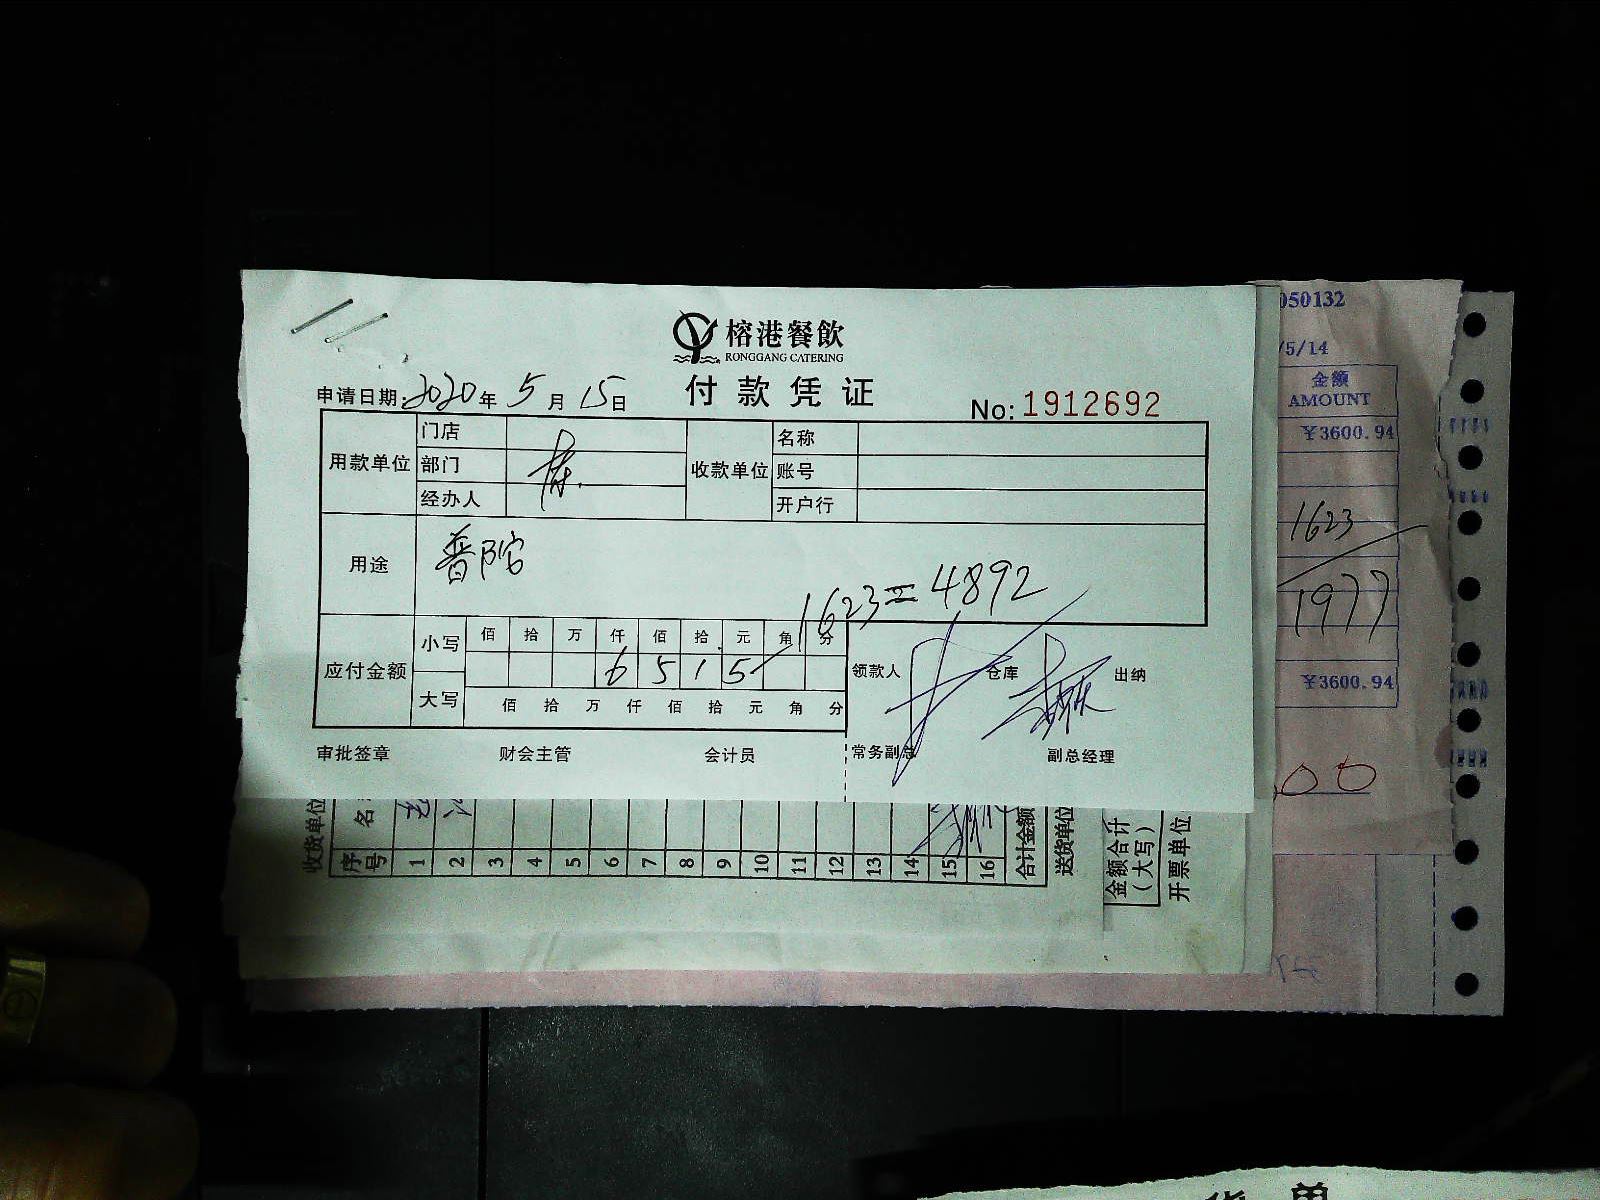 榕港餐飲
RONGGANG CATERING
付款凭证
申请日期:2020年5月15日
No:1912692
用款单位
门店
部门
经办人
收款单位
名称
账号
开户行
用途
普陀
1623=4892
应付金额
小写
佰 拾 万 仟 佰 拾 元 角 分
6 5 1 5
大写
佰 拾 万 仟 佰 拾 元 角 分
领款人
仓库
出纳
审批签章
财会主管
会计员
常务副总
副总经理
050132
/5/14
金额
AMOUNT
¥3600.94
1623
1977
¥3600.94
00
收货单位
序号
名
1
2
3
4
5
6
7
8
9
10
11
12
13
14
15
16
合计金额
送货单位
金额合计
(大写)
开票单位